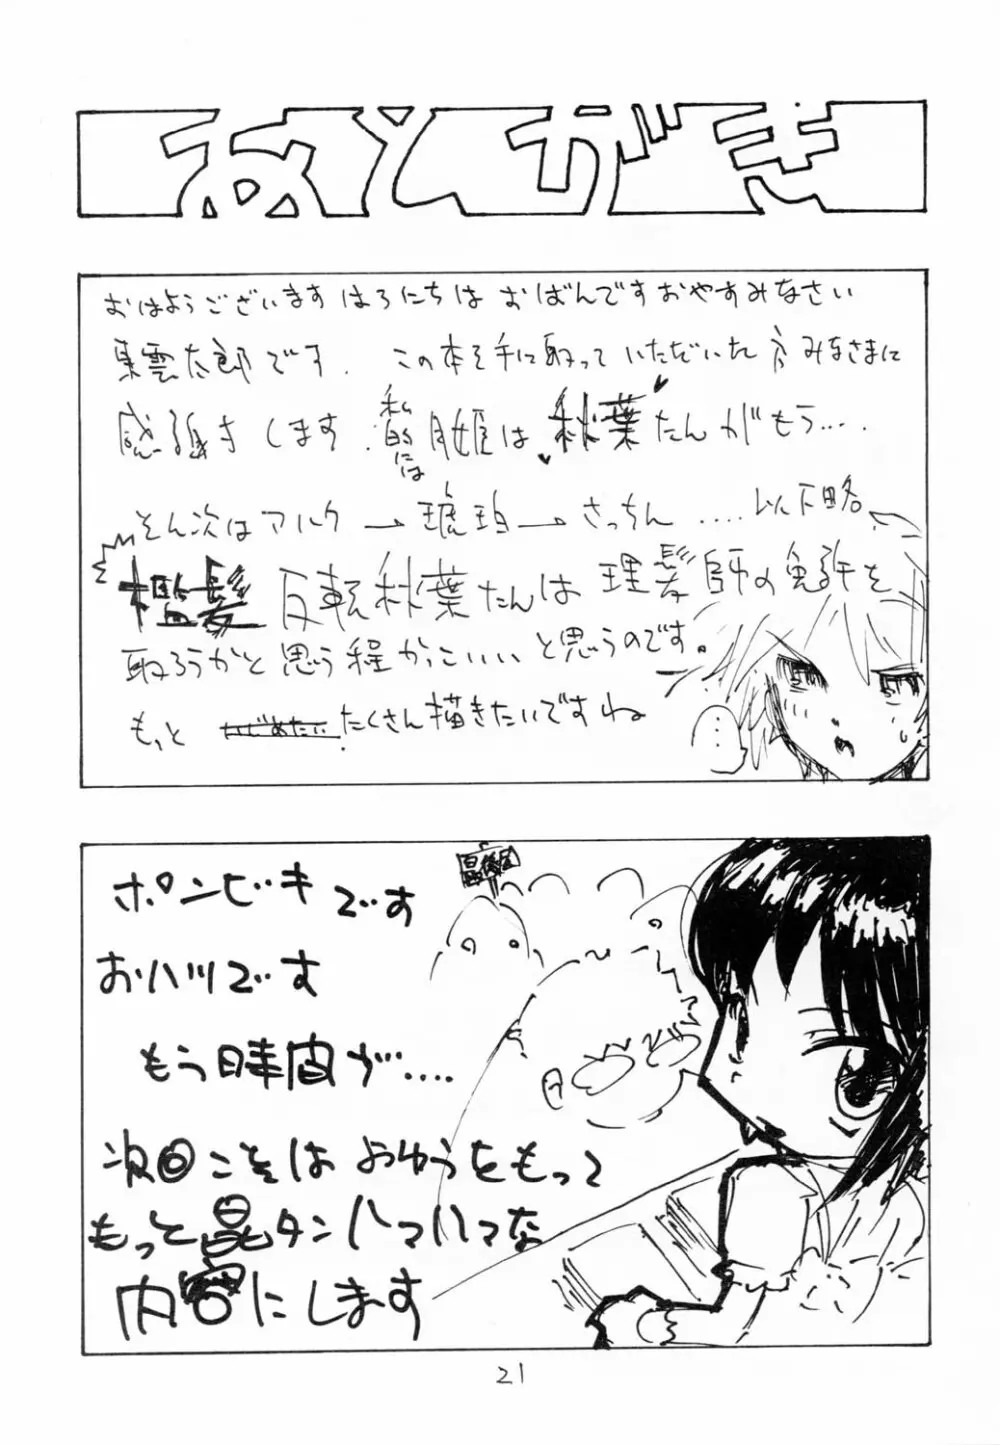 あとがき
おはようございます はろにちは おばんです おやすみなさい
東雲太郎です. この本を手に取っていただいた方みなさまに
感謝します. 私的には月姫は秋葉たんがもう....
そん次はアルク→琥珀→さっちん....以下略
檻髪 反転秋葉たんは理髪師の免許を
取ろうかと思う程かっこいいと思うのです。
もっと いじめたい たくさん描きたいですね
...
ポンビキです
おハツです
もう時間が....
次回こそは おゆうをもって
もっと晶タンハァハァな
内容にします
最後尾
わい
わい
21